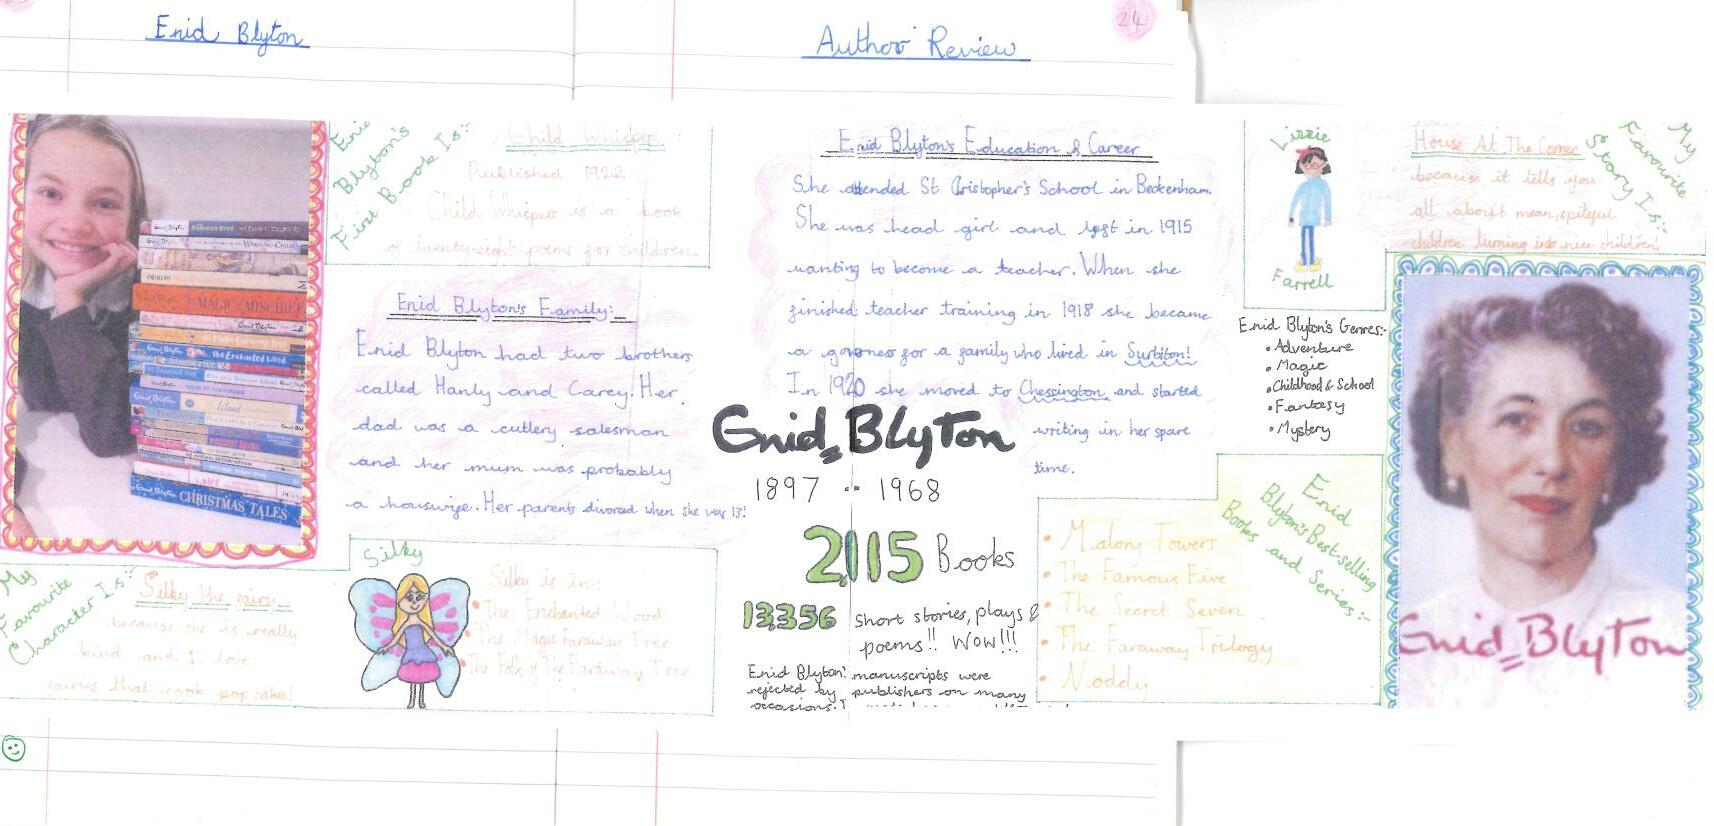 Enid Blyton
Author Review
24
Enid
Blyton's
First Book Is:-
Child Whisper:
Published 1922
Child Whisper is a book
of twenty-eight poems for children.
Enid Blyton's Family:
Enid Blyton had two brothers
called Hanly and Carey. Her
dad was a cutlery salesman
and her mum was probably
a housewife. Her parents divorced when she was 13!
My
Favourite
Character Is:-
Silky the fairy
because she is really
kind and I love
fairies that cook pop cakes!
Silky
Silky is in:
• The Enchanted Wood
• The Magic Faraway Tree
• The Folk of The Faraway Tree
Enid Blyton's Education & Career
She attended St Cristopher's School in Beckenham.
She was head girl and left in 1915
wanting to become a teacher. When she
finished teacher training in 1918 she became
a governess for a family who lived in Surbiton!
In 1920 she moved to Chessington and started
writing in her spare
time.
Enid Blyton
1897 -- 1968
2,115 Books
13,356 short stories, plays &
poems!! WOW!!!
Enid Blyton' manuscripts were
rejected by publishers on many
occasions.
Lizzie
Farrell
My
Favourite
Story Is:-
House At The Corner
because it tells you
all about mean, spiteful
children turning into nice children!
Enid Blyton's Genres:-
• Adventure
• Magic
• Childhood & School
• Fantasy
• Mystery
Enid
Blyton's Best-selling
Books and Series:-
• Malory Towers
• The Famous Five
• The Secret Seven
• The Faraway Trilogy
• Noddy
Enid Blyton
MAGIC MISCHIEF
The Enchanted Wood
Island
Enid Blyton CHRISTMAS TALES